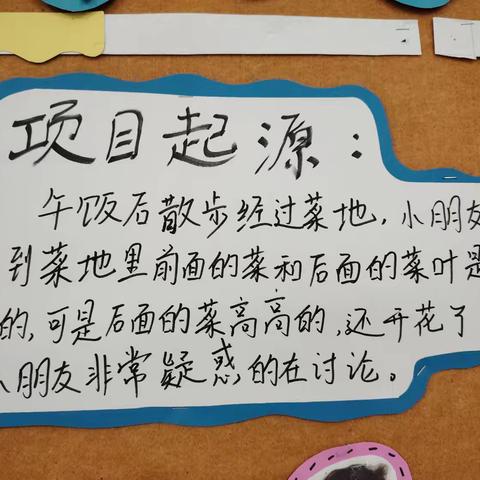 项目起源：
午饭后散步经过菜地，小朋友
到菜地里前面的菜和后面的菜叶是
的，可是后面的菜高高的，还开花了
朋友非常疑惑的在讨论。